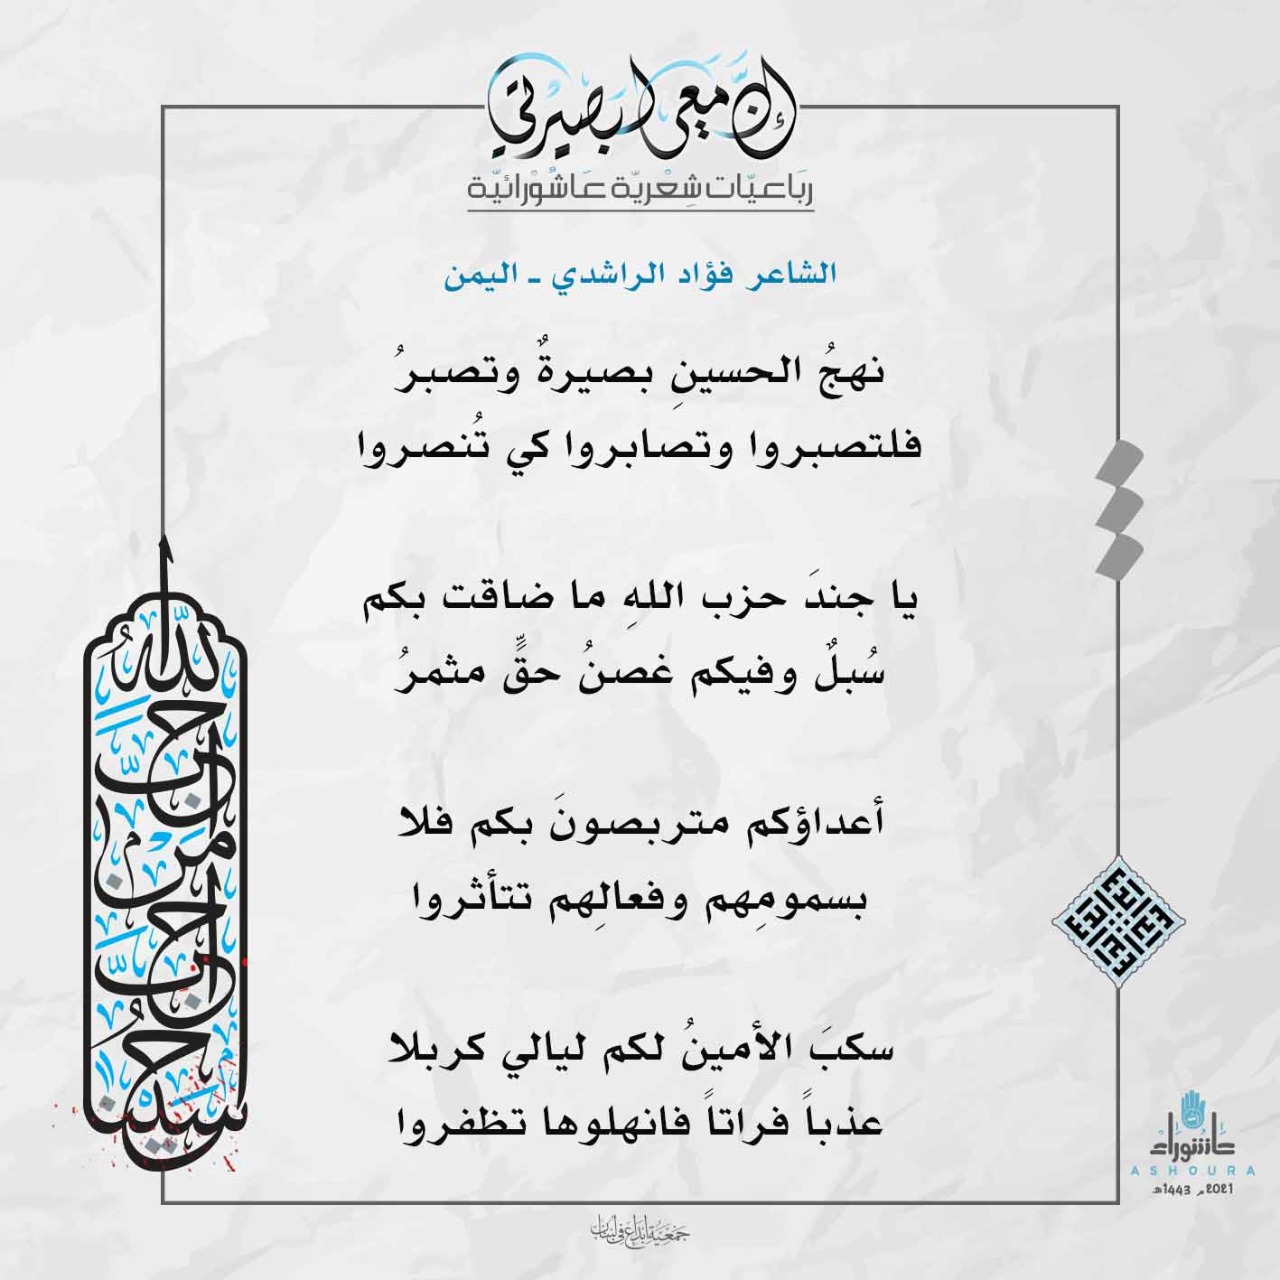 إنّ معي لبصيرتي
رباعيّات شِعْريّة عاشُورائيّة
الشاعر فؤاد الراشدي ـ اليمن
نهجُ الحسينِ بصيرةٌ وتصبرُ
فلتصبروا وتصابروا كي تُنصروا
يا جندَ حزب اللهِ ما ضاقت بكم
سُبلٌ وفيكم غصنُ حقٍّ مثمرُ
أعداؤكم متربصونَ بكم فلا
بسمومِهم وفعالِهم تتأثروا
سكبَ الأمينُ لكم ليالي كربلا
عذباً فراتاً فانهلوها تظفروا
أحب الله من أحب حسينا
عاشوراء
ASHOURA
2021م 1443هـ
جمعية إبداع في لبنان